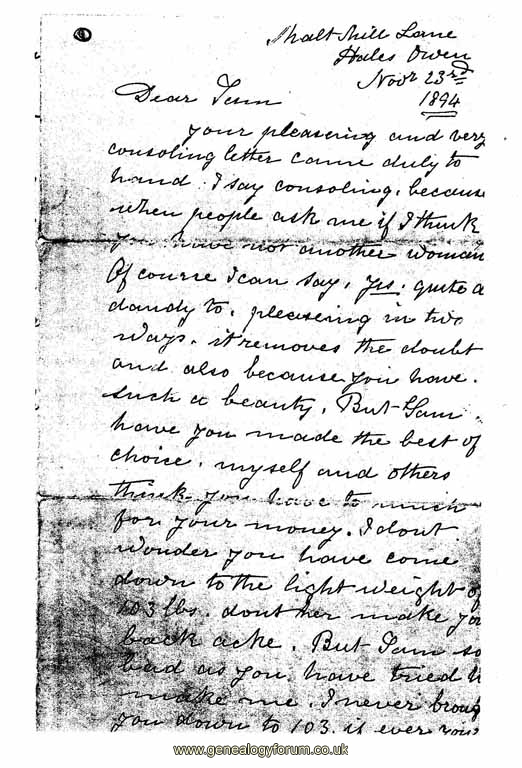 Malt Mill Lane
Hales Owen
Novr 23rd
1894
Dear Sam
your pleaseing and very
consoling letter came duly to
hand. I say consoling, because
when people ask me if I think
you have not another woman
Of course I can say, yes, quite a
dandy to, pleaseing in two
ways. it removes the doubt
and also because you have.
such a beauty. But Sam.
have you made the best of
choice, myself and others
think you have to much
for your money. I dont
wonder you have come
down to the light weight of
103 lbs. dont her make you
back acke. But Sam so
bad as you have tried
make me. I never
you down to 103. if ever you
www.genealogyforum.co.uk